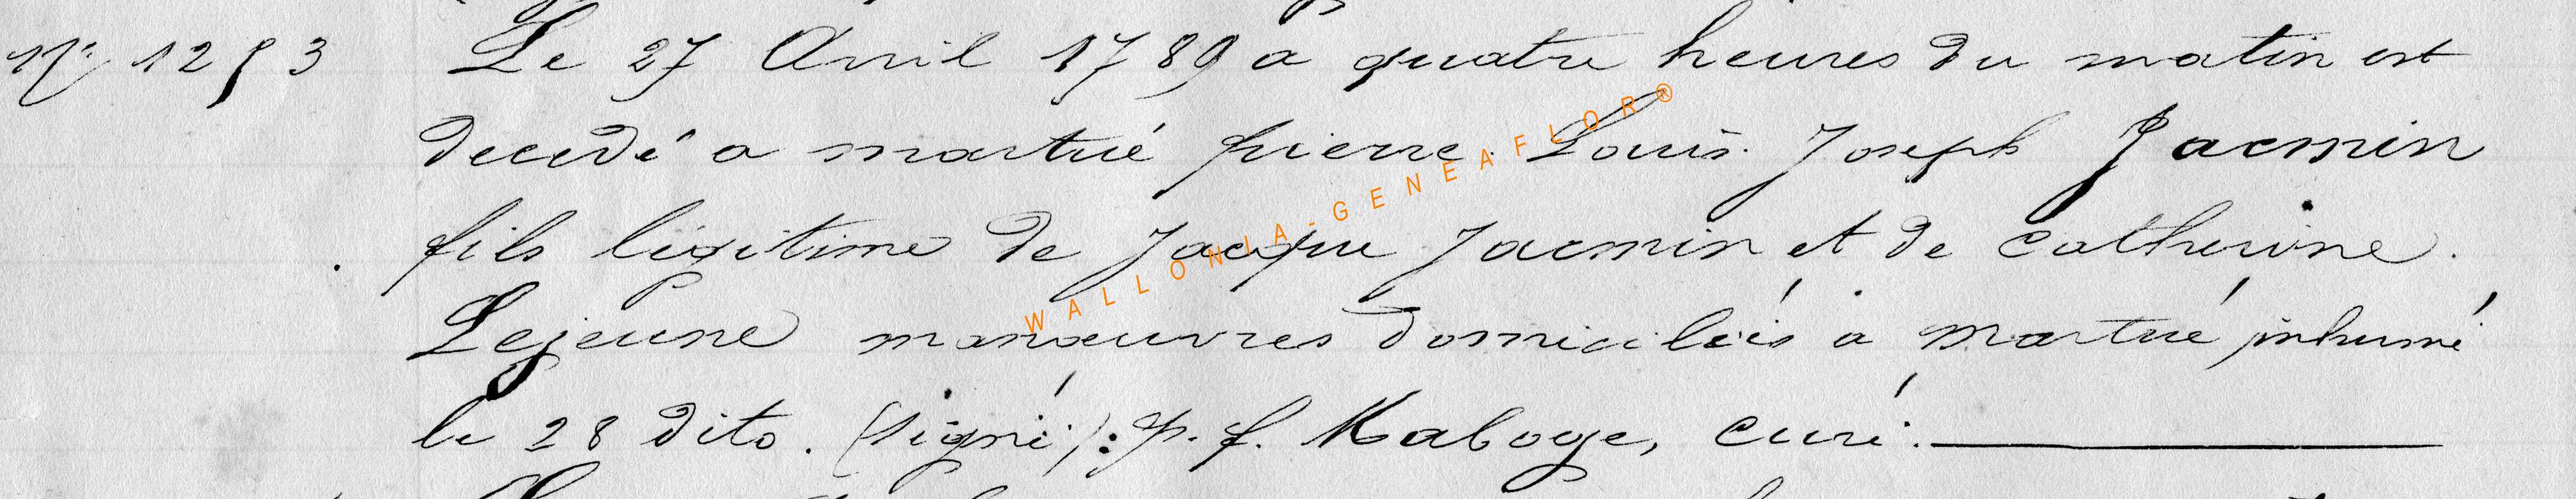 N° 1293 Le 27 Avril 1789 a quatre heures du matin est
decedé a martué pierre. Louis. Joseph Jacmin
fils légitime de Jacque Jacmin et de Catherine.
Lejeune manœuvres domiciliés à Martué inhumé
le 28 dito. (signé): p. f. Maboge, curé.
WALLONIA-GENEAFLOR®